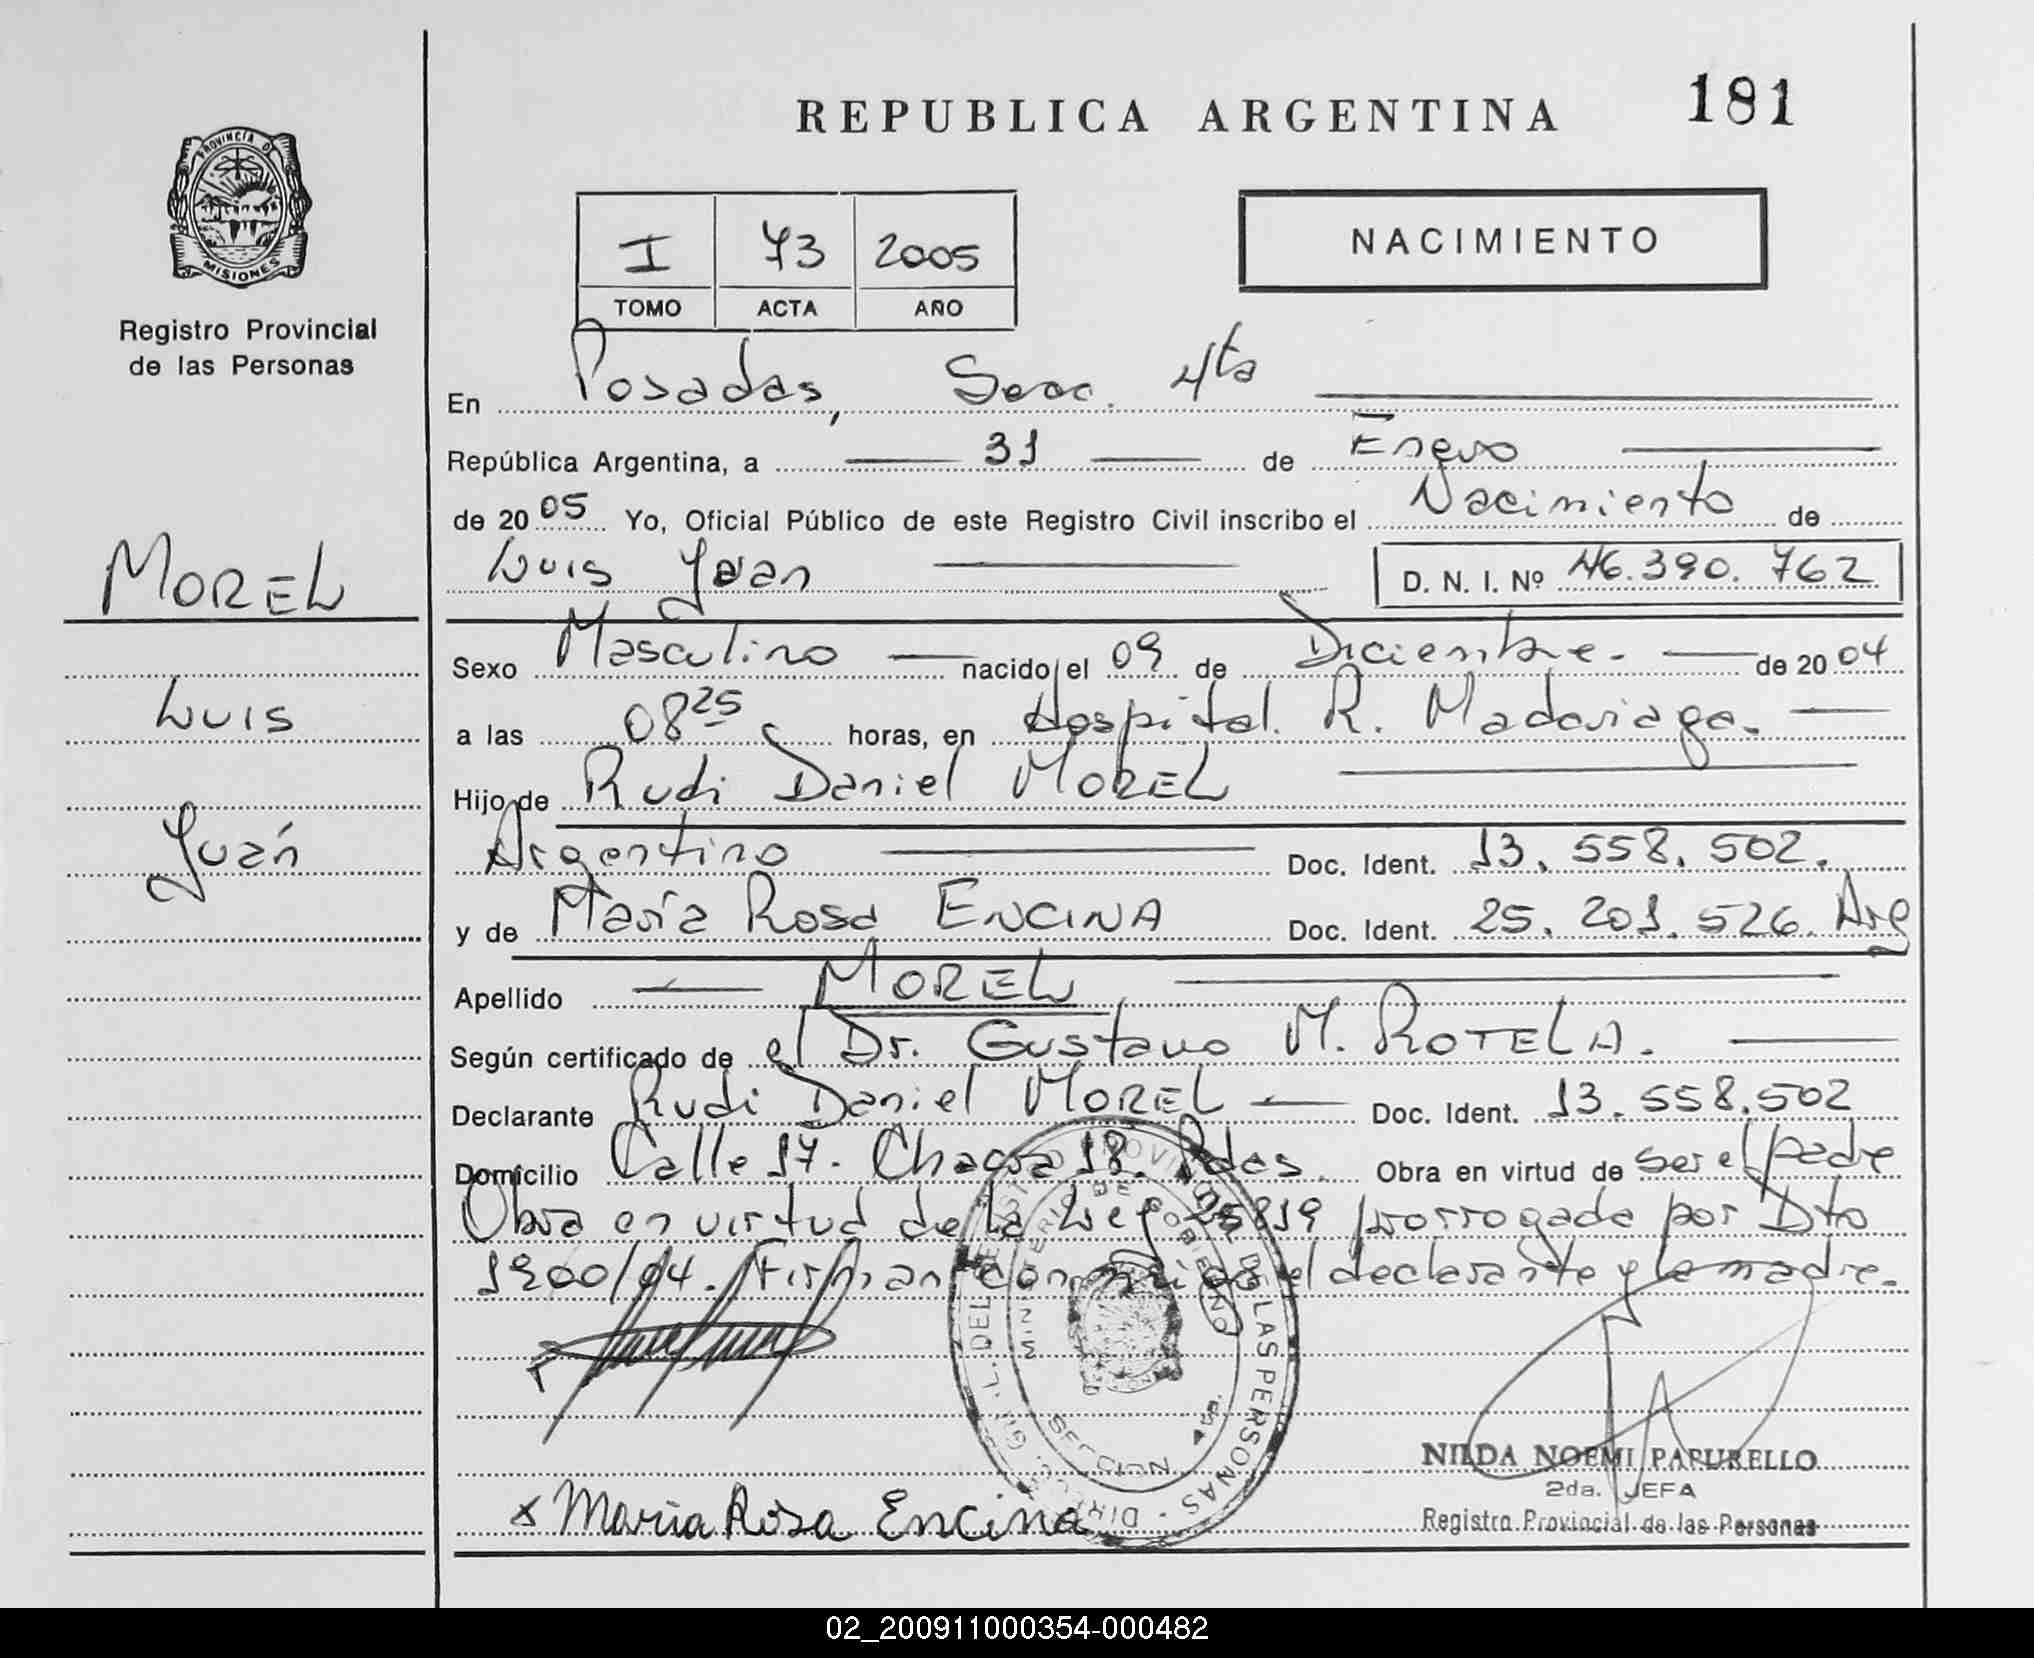 REPUBLICA ARGENTINA
181
PROVINCIA DE
MISIONES
Registro Provincial
de las Personas
I 73 2005
TOMO ACTA AÑO
NACIMIENTO
En Posadas, Secc. 4ta
República Argentina, a 31 de Enero
de 2005 Yo, Oficial Público de este Registro Civil inscribo el Nacimiento de
Luis Juan D. N. I. Nº 46.390.762
MOREL
Luis
Juán
Sexo Masculino nacido el 09 de Diciembre. de 2004
a las 08 25 horas, en Hospital. R. Madariaga.
Hijo de Rudi Daniel MOREL
Argentino Doc. Ident. 13.558.502.
y de María Rosa ENCINA Doc. Ident. 25.201.526. Arg
Apellido MOREL
Según certificado de el Dr. Gustavo M. ROTELA.
Declarante Rudi Daniel MOREL Doc. Ident. 13.558.502
Domicilio Calle 17. Chacra 18. Pdas. Obra en virtud de ser el padre
Obra en virtud de la Ley 25819 prorrogada por Dto
1900/04. Firman conmigo el declarante y la madre.
SECCION
DE LAS PERSONAS
NILDA NOEMI PAPURELLO
2da. JEFA
Registro Provincial de las Personas
x Maria Rosa Encina
02_200911000354-000482